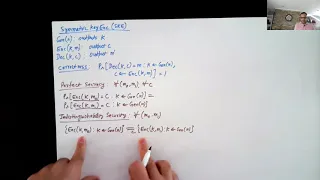 Symmetric Key Enc (SKE)
Gen(n): outputs K
Enc(K, m) output c
Dec(K, c) output m
correctness Pr[Dec(K, c) = m : K ← Gen(n),
c ← Enc(K, m)] = 1
Perfect Security: ∀ (m₀, m₁) ∀ C
Pr[Enc(K, m₀) = C : K ← Gen(n)] =
Pr[Enc(K, m₁) = C : K ← Gen(n)]
Indistinguishability Security: ∀ (m₀, m₁)
{Enc(K, m₀) : K ← Gen(n)} ≡ {Enc(K, m₁) : K ← Gen(n)}